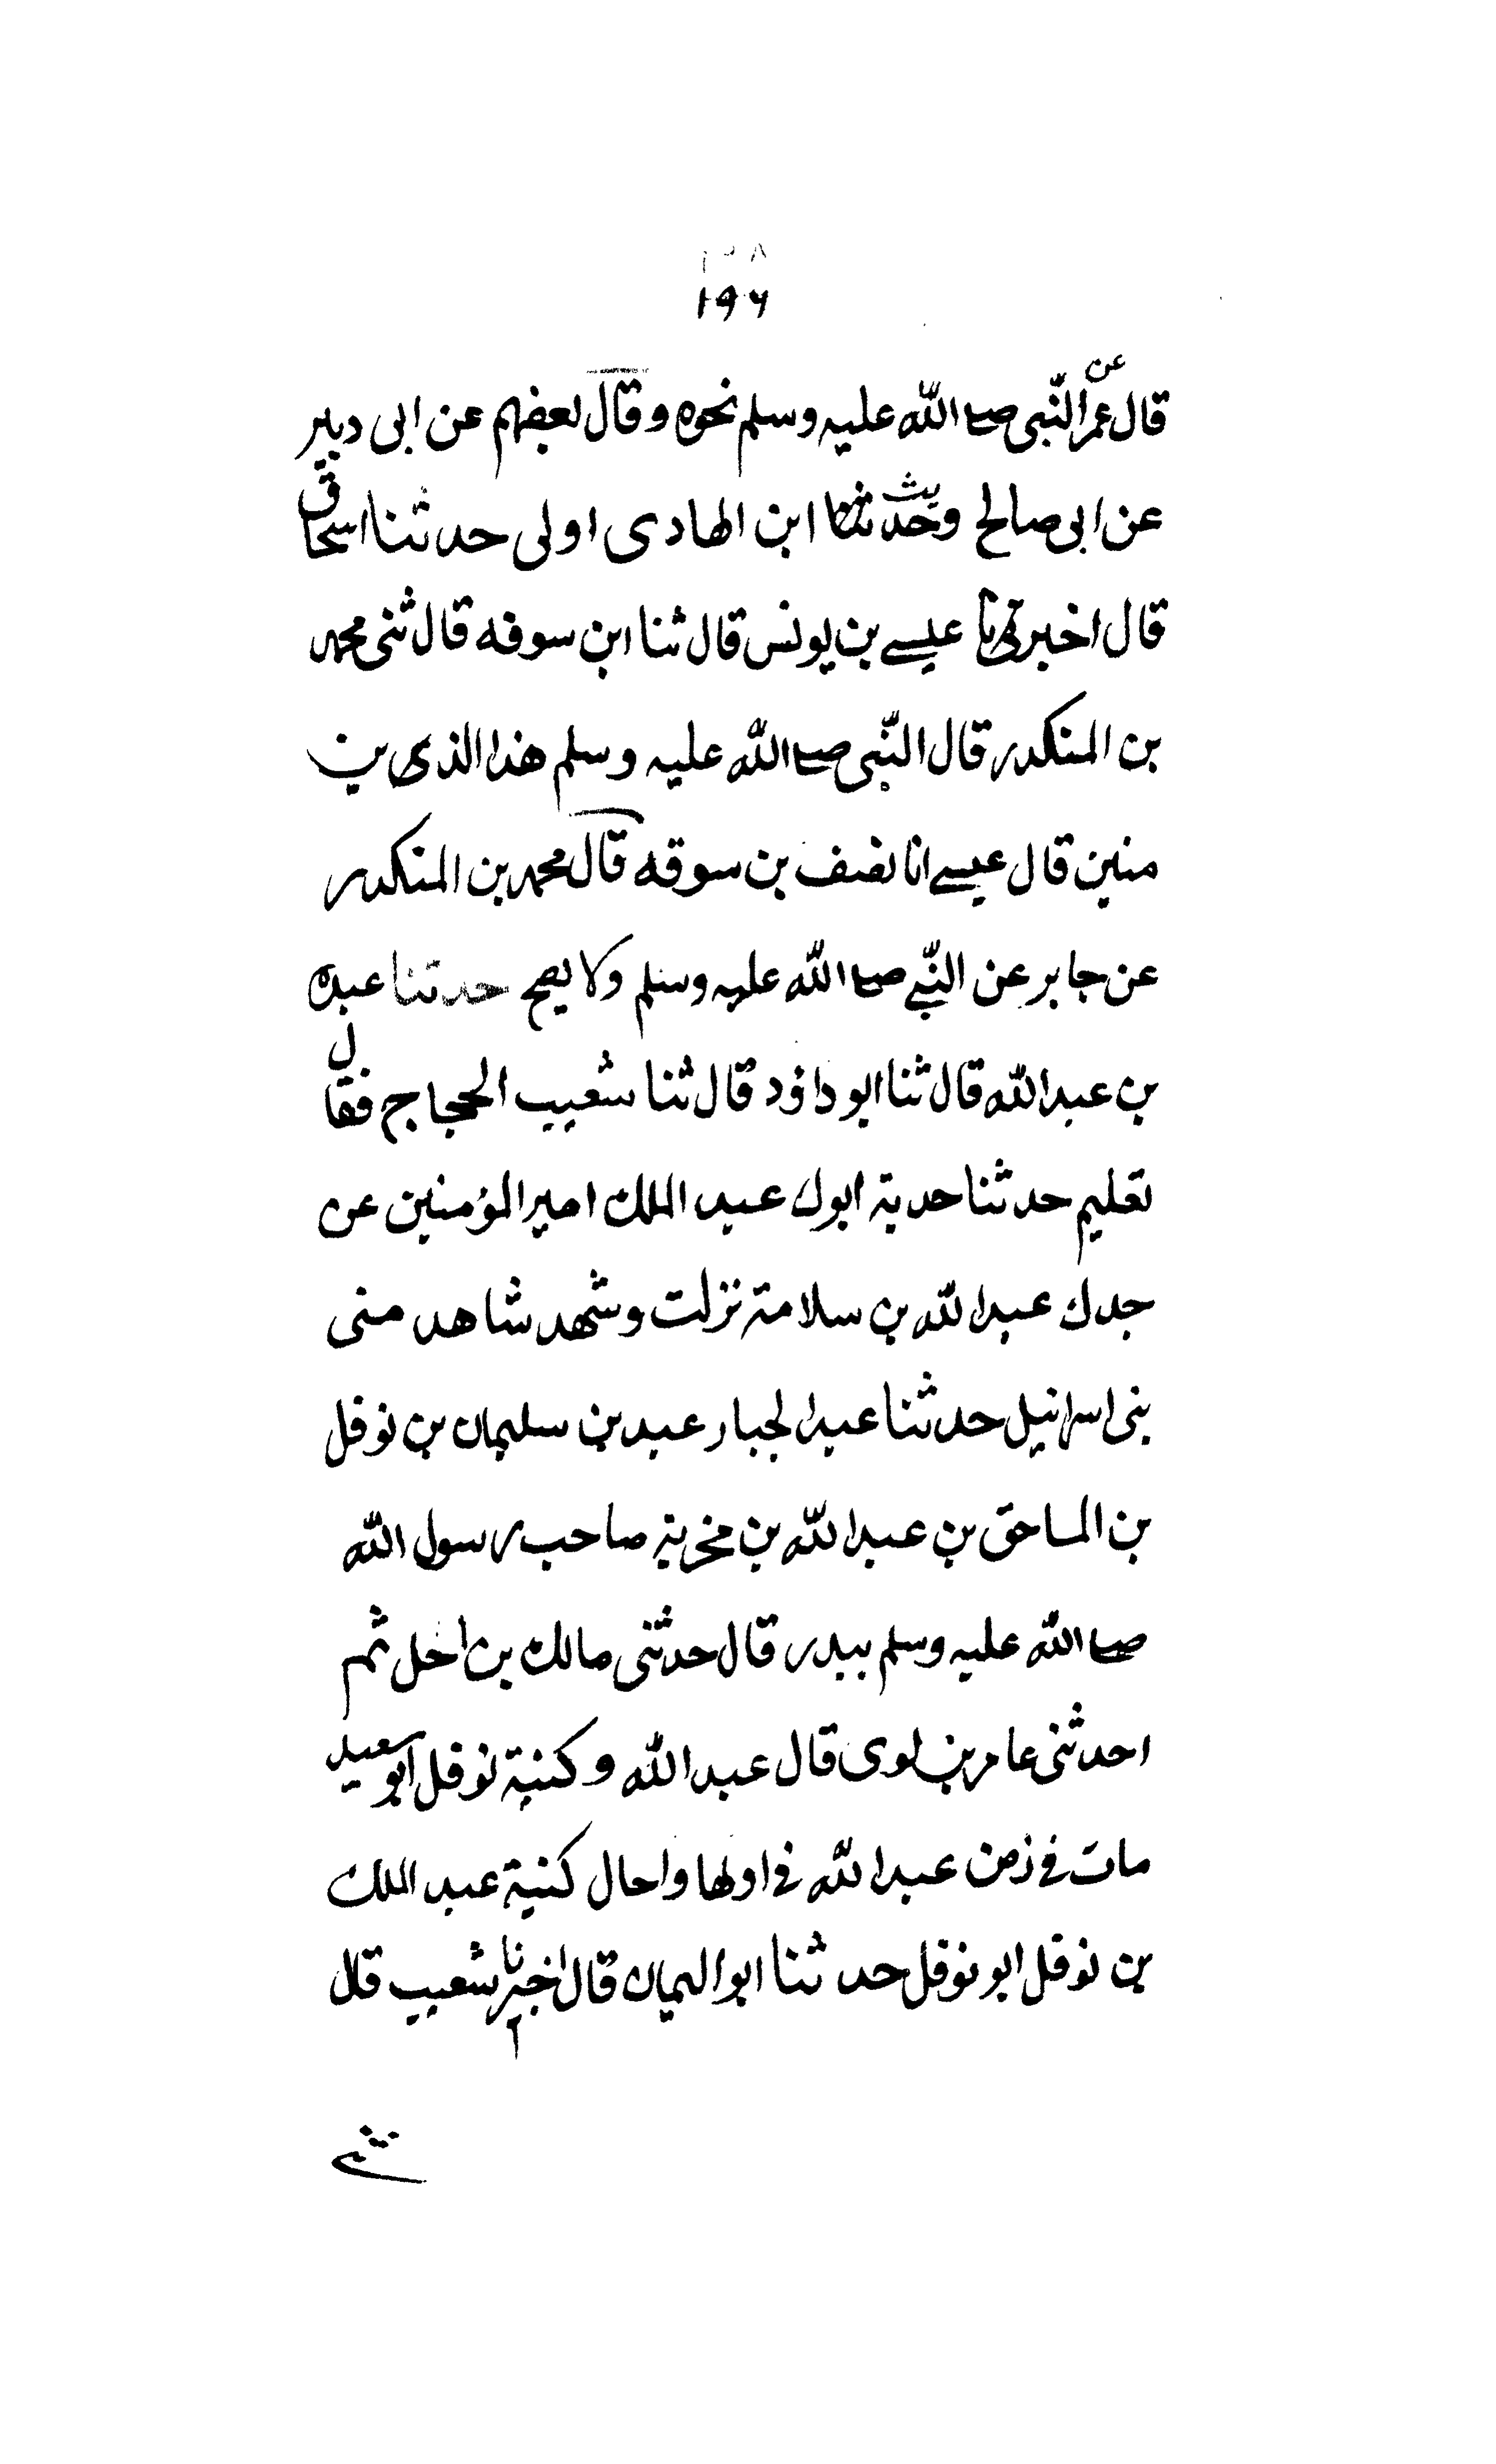 ١٩٦
قال عمر عن النبى صلى الله عليه وسلم نحوه وقال بعضهم عن ابى دبير
عن ابى صالح وحديث ابن الهادى اولى حدثنا اسحاق
قال اخبرنا عيسے بن يونس قال ثنا ابن سوقه قال ثنى محمد
بن المنكدر قال النبى صلى الله عليه وسلم هذا الذى بن
منين قال عيسے انا نصف بن سوقه قال محمد بن المنكدر
عن جابر عن النبے صلى الله عليه وسلم ولا يصح حدثنا عبده
بن عبدالله قال ثنا ابو داؤد قال ثنا شعيب الحجاج فقال
تعليم حدثنا حدية ابوك عبد الملك امير المؤمنين عن
جدك عبدالله بن سلامة نزلت وشهد شاهد منى
بنى اسرائيل حدثنا عبدالجبار عبد بن سليمان بن نوفل
بن المساحق بن عبدالله بن مخرية صاحب رسول الله
صلى الله عليه وسلم ببدر قال حدثنى مالك بن احل ثم
احدثنى عامر بن لوى قال عبدالله وكنية نوفل ابو سعيد
مات فے زمن عبدالله فے اولها واحال كنية عبد الملك
بن نوفل ابو نوفل حدثنا ابو اليمان قال اخبرنا شعيب قال